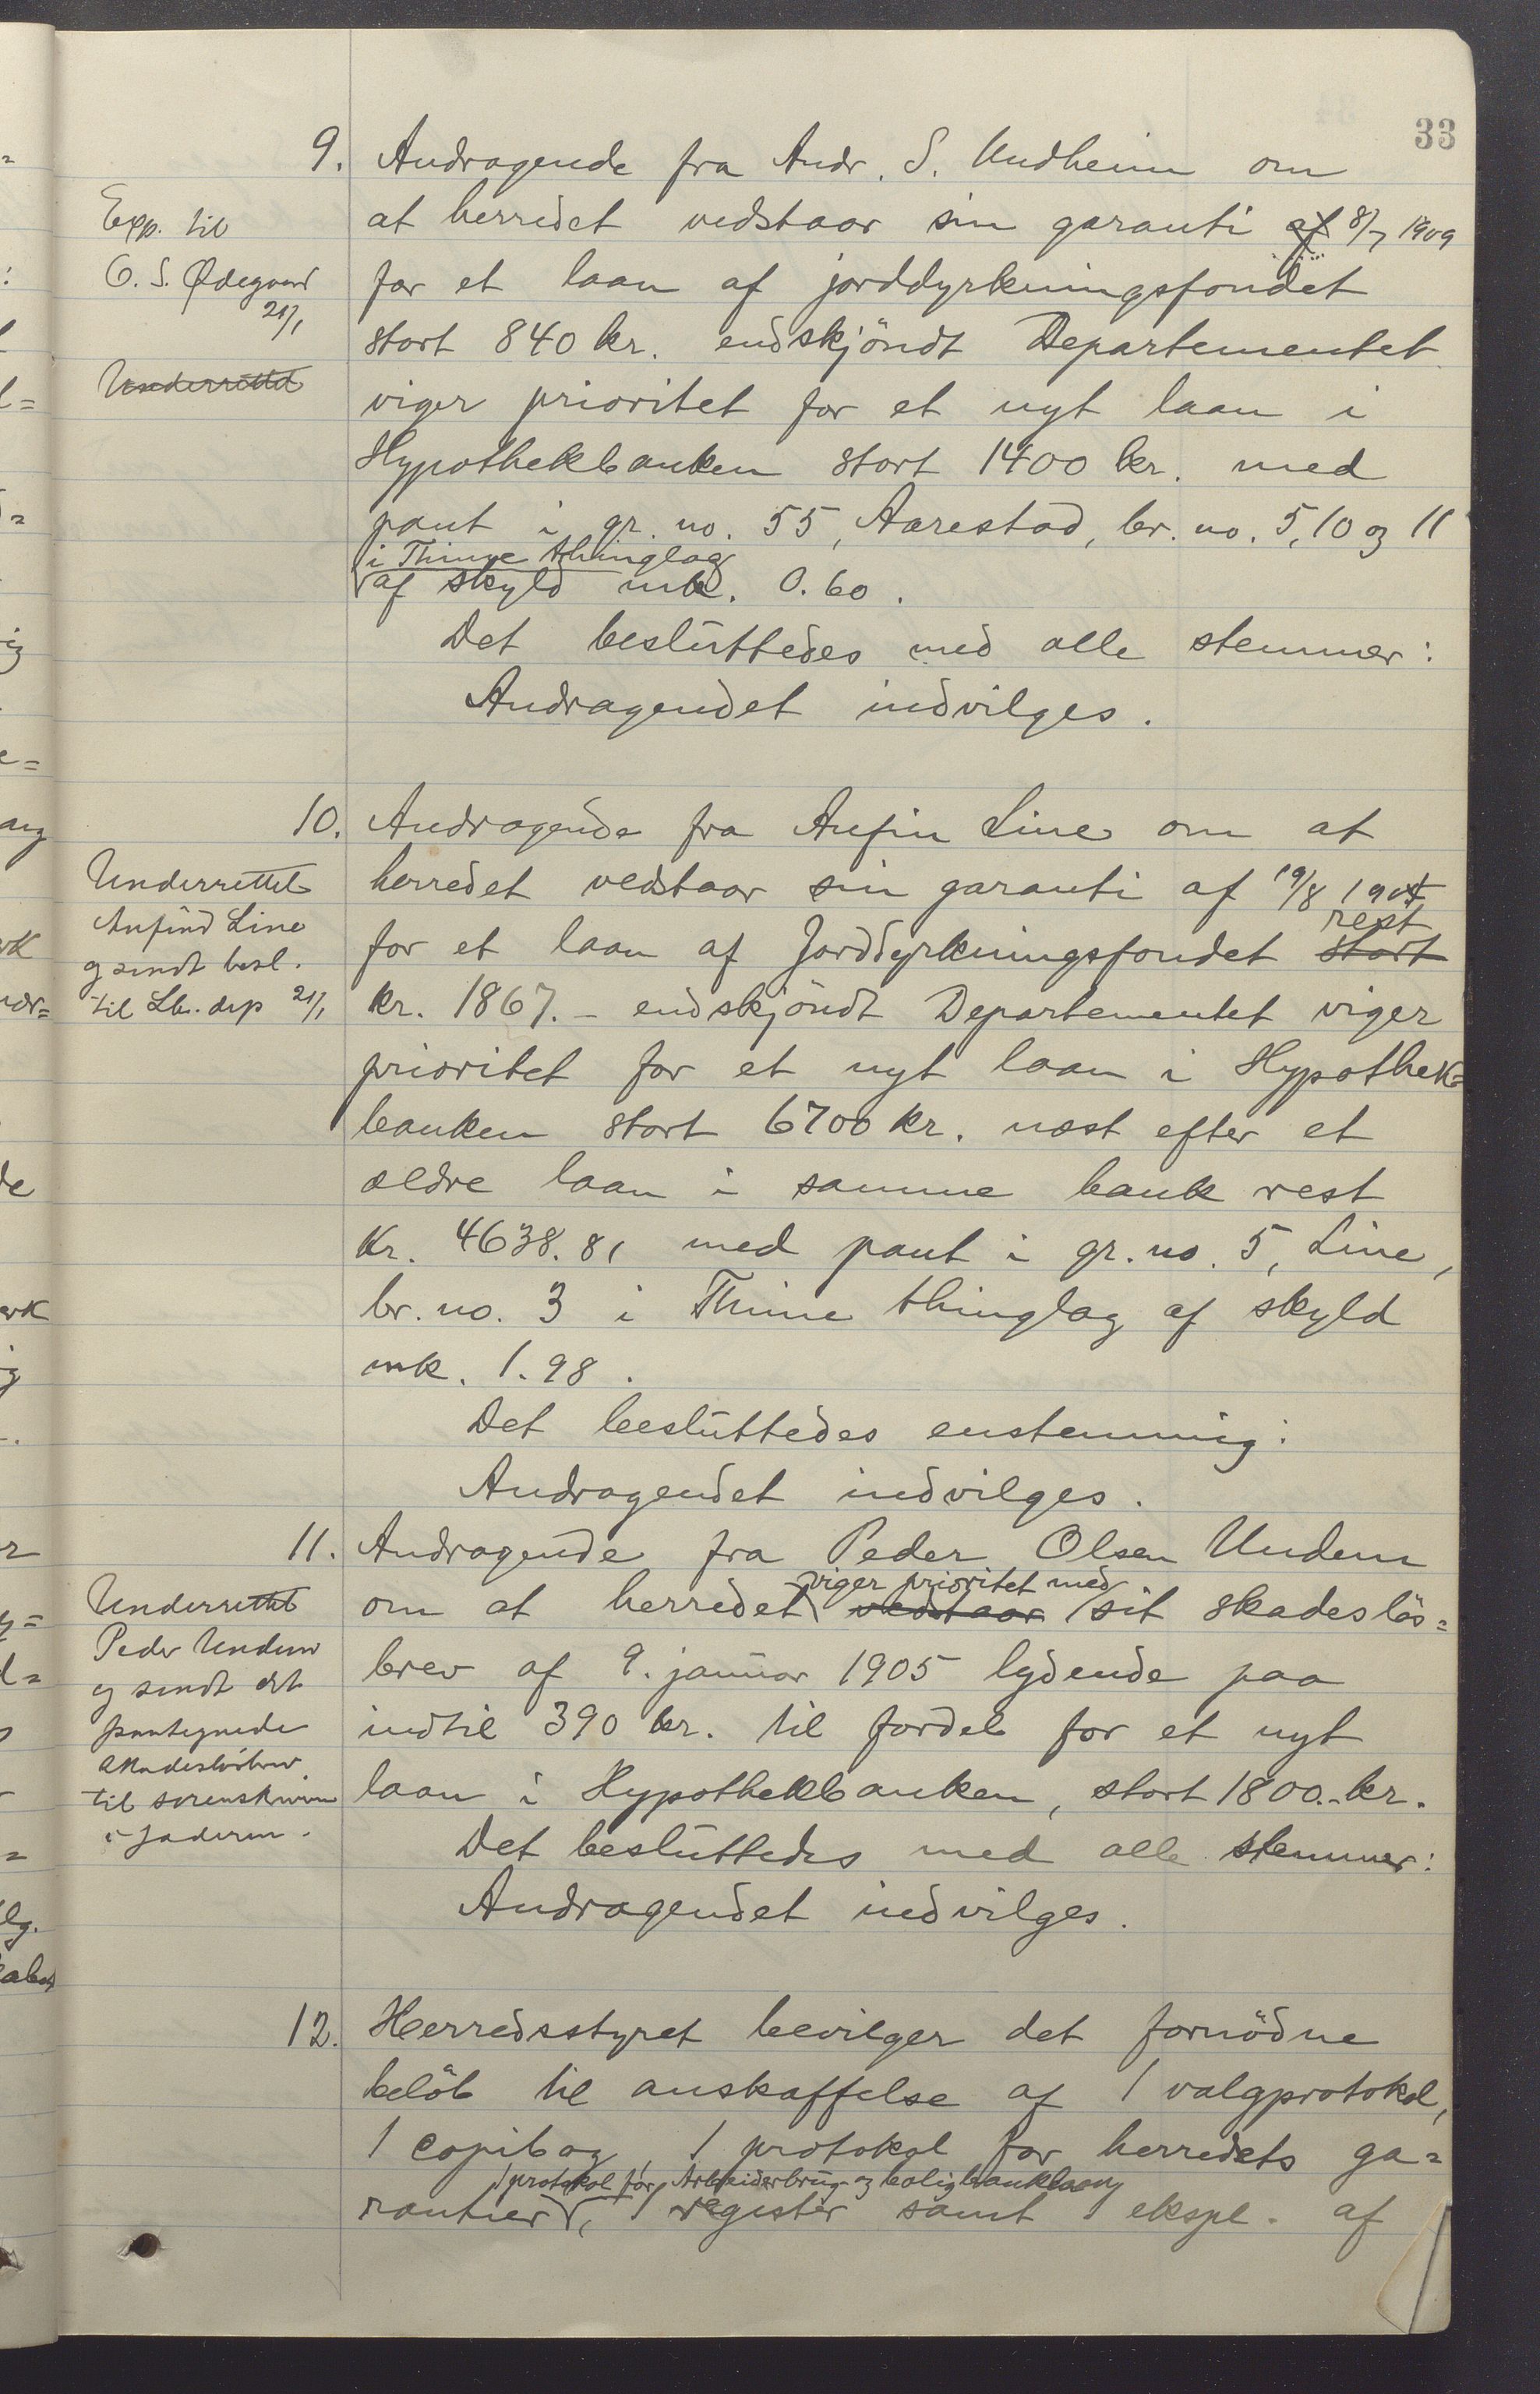 33
9. Andragende fra Andr. S. Undheim om
at herredet vedstaar sin garanti af 8/7 1909
for et laan af jorddyrkningsfondet
stort 840 kr. endskjöndt Departementet
viger prioritet for et nyt laan i
Hypothekbanken stort 1400 kr. med
pant i gr. no. 55, Aarestad, br. no. 5, 10 og 11
i Thime thinglag
af skyld mk. 0.60.
Det besluttedes med alle stemmer:
Andragendet indvilges.
Exp. til
O. S. Ødegaard
21/1
Underrettet
10. Andragende fra Anfin Line om at
herredet vedstaar sin garanti af 19/8 1904
rest
for et laan af Jorddyrkningsfondet stort
kr. 1867.- endskjöndt Departementet viger
prioritet for et nyt laan i Hypothek=
banken stort 6700 kr. næst efter et
ældre laan i samme bank rest
Kr. 4638.81 med pant i gr. no. 5, Line,
br. no. 3 i Thime thinglag af skyld
mk. 1.98.
Det besluttedes enstemmig:
Andragendet indvilges.
Underrettet
Anfind Line
og sendt besl.
til Lb. dep 21/1
11. Andragende fra Peder Olsen Undem
viger prioritet med
om at herredet vedstaar sit skadeslös=
brev af 9. januar 1905 lydende paa
indtil 390 kr. til fordel for et nyt
laan i Hypothekbanken, stort 1800.- kr.
Det besluttedes med alle stemmer:
Andragendet indvilges.
Underrettet
Peder Undem
og sendt det
paategnede
skadeslösbrev
til sorenskriveren
i Jæderen.
12. Herredsstyret bevilger det fornödne
belöb til anskaffelse af 1 valgprotokol,
1 copibog, 1 protokol for herredets ga=
1 protokol for Arbeiderbrug- og boligbanklaan
rantier, 1 register samt 1 ekspl. af